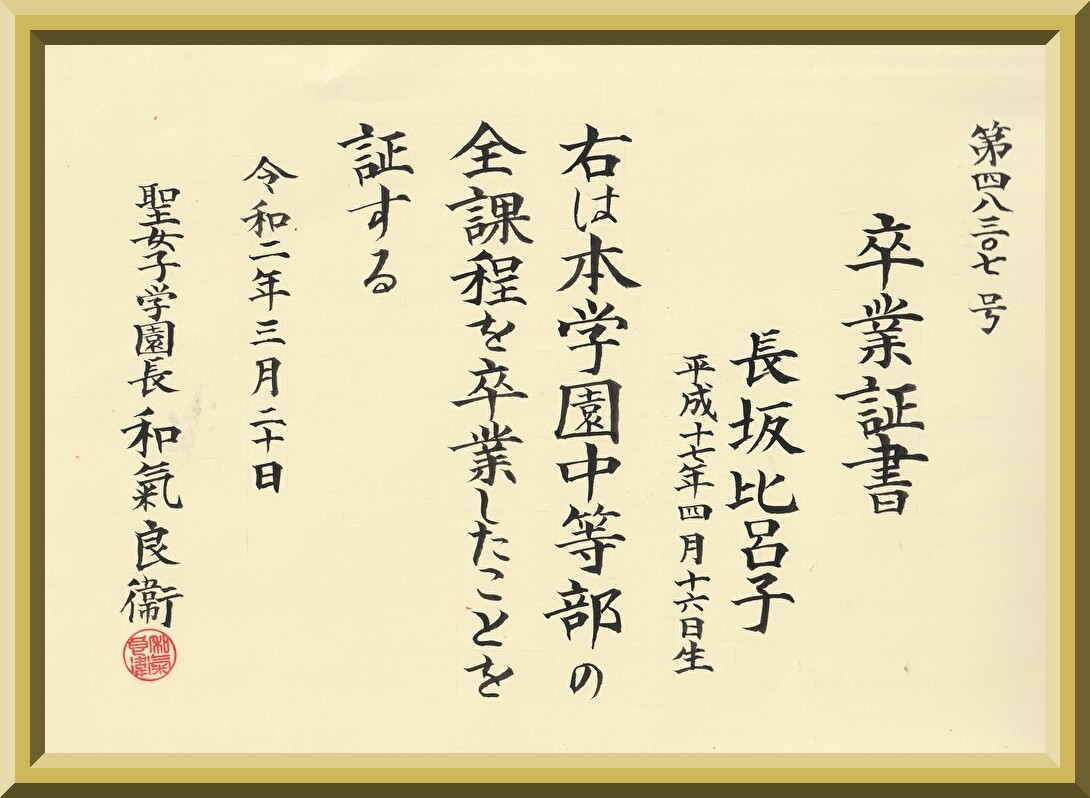 第四八三〇七号
卒業証書
長坂比呂子
平成十七年四月十六日生
右は本学園中等部の
全課程を卒業したことを
証する
令和二年三月二十日
聖女子学園長 和氣良衞